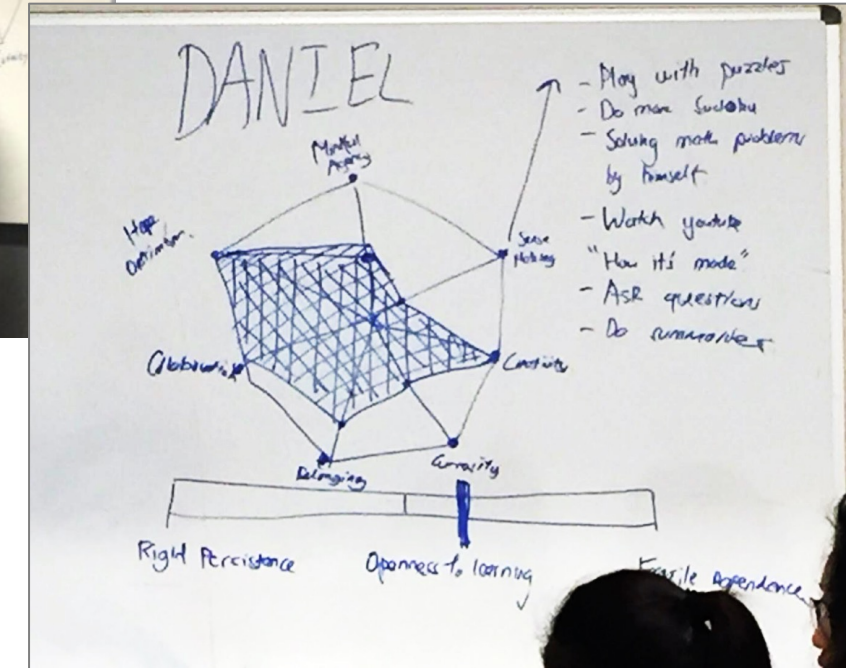 DANIEL
Mindful
Agency
Hope
Optimism.
Sense
Making
Collaboration
Creativity
Belonging
Curiosity
- Play with puzzles
- Do more Sudoku
- Solving math problems
by himself
- Watch youtube
"How it's made"
- Ask questions
- Do summaries
Rigid Persistence
Openness to learning
Fragile Dependence